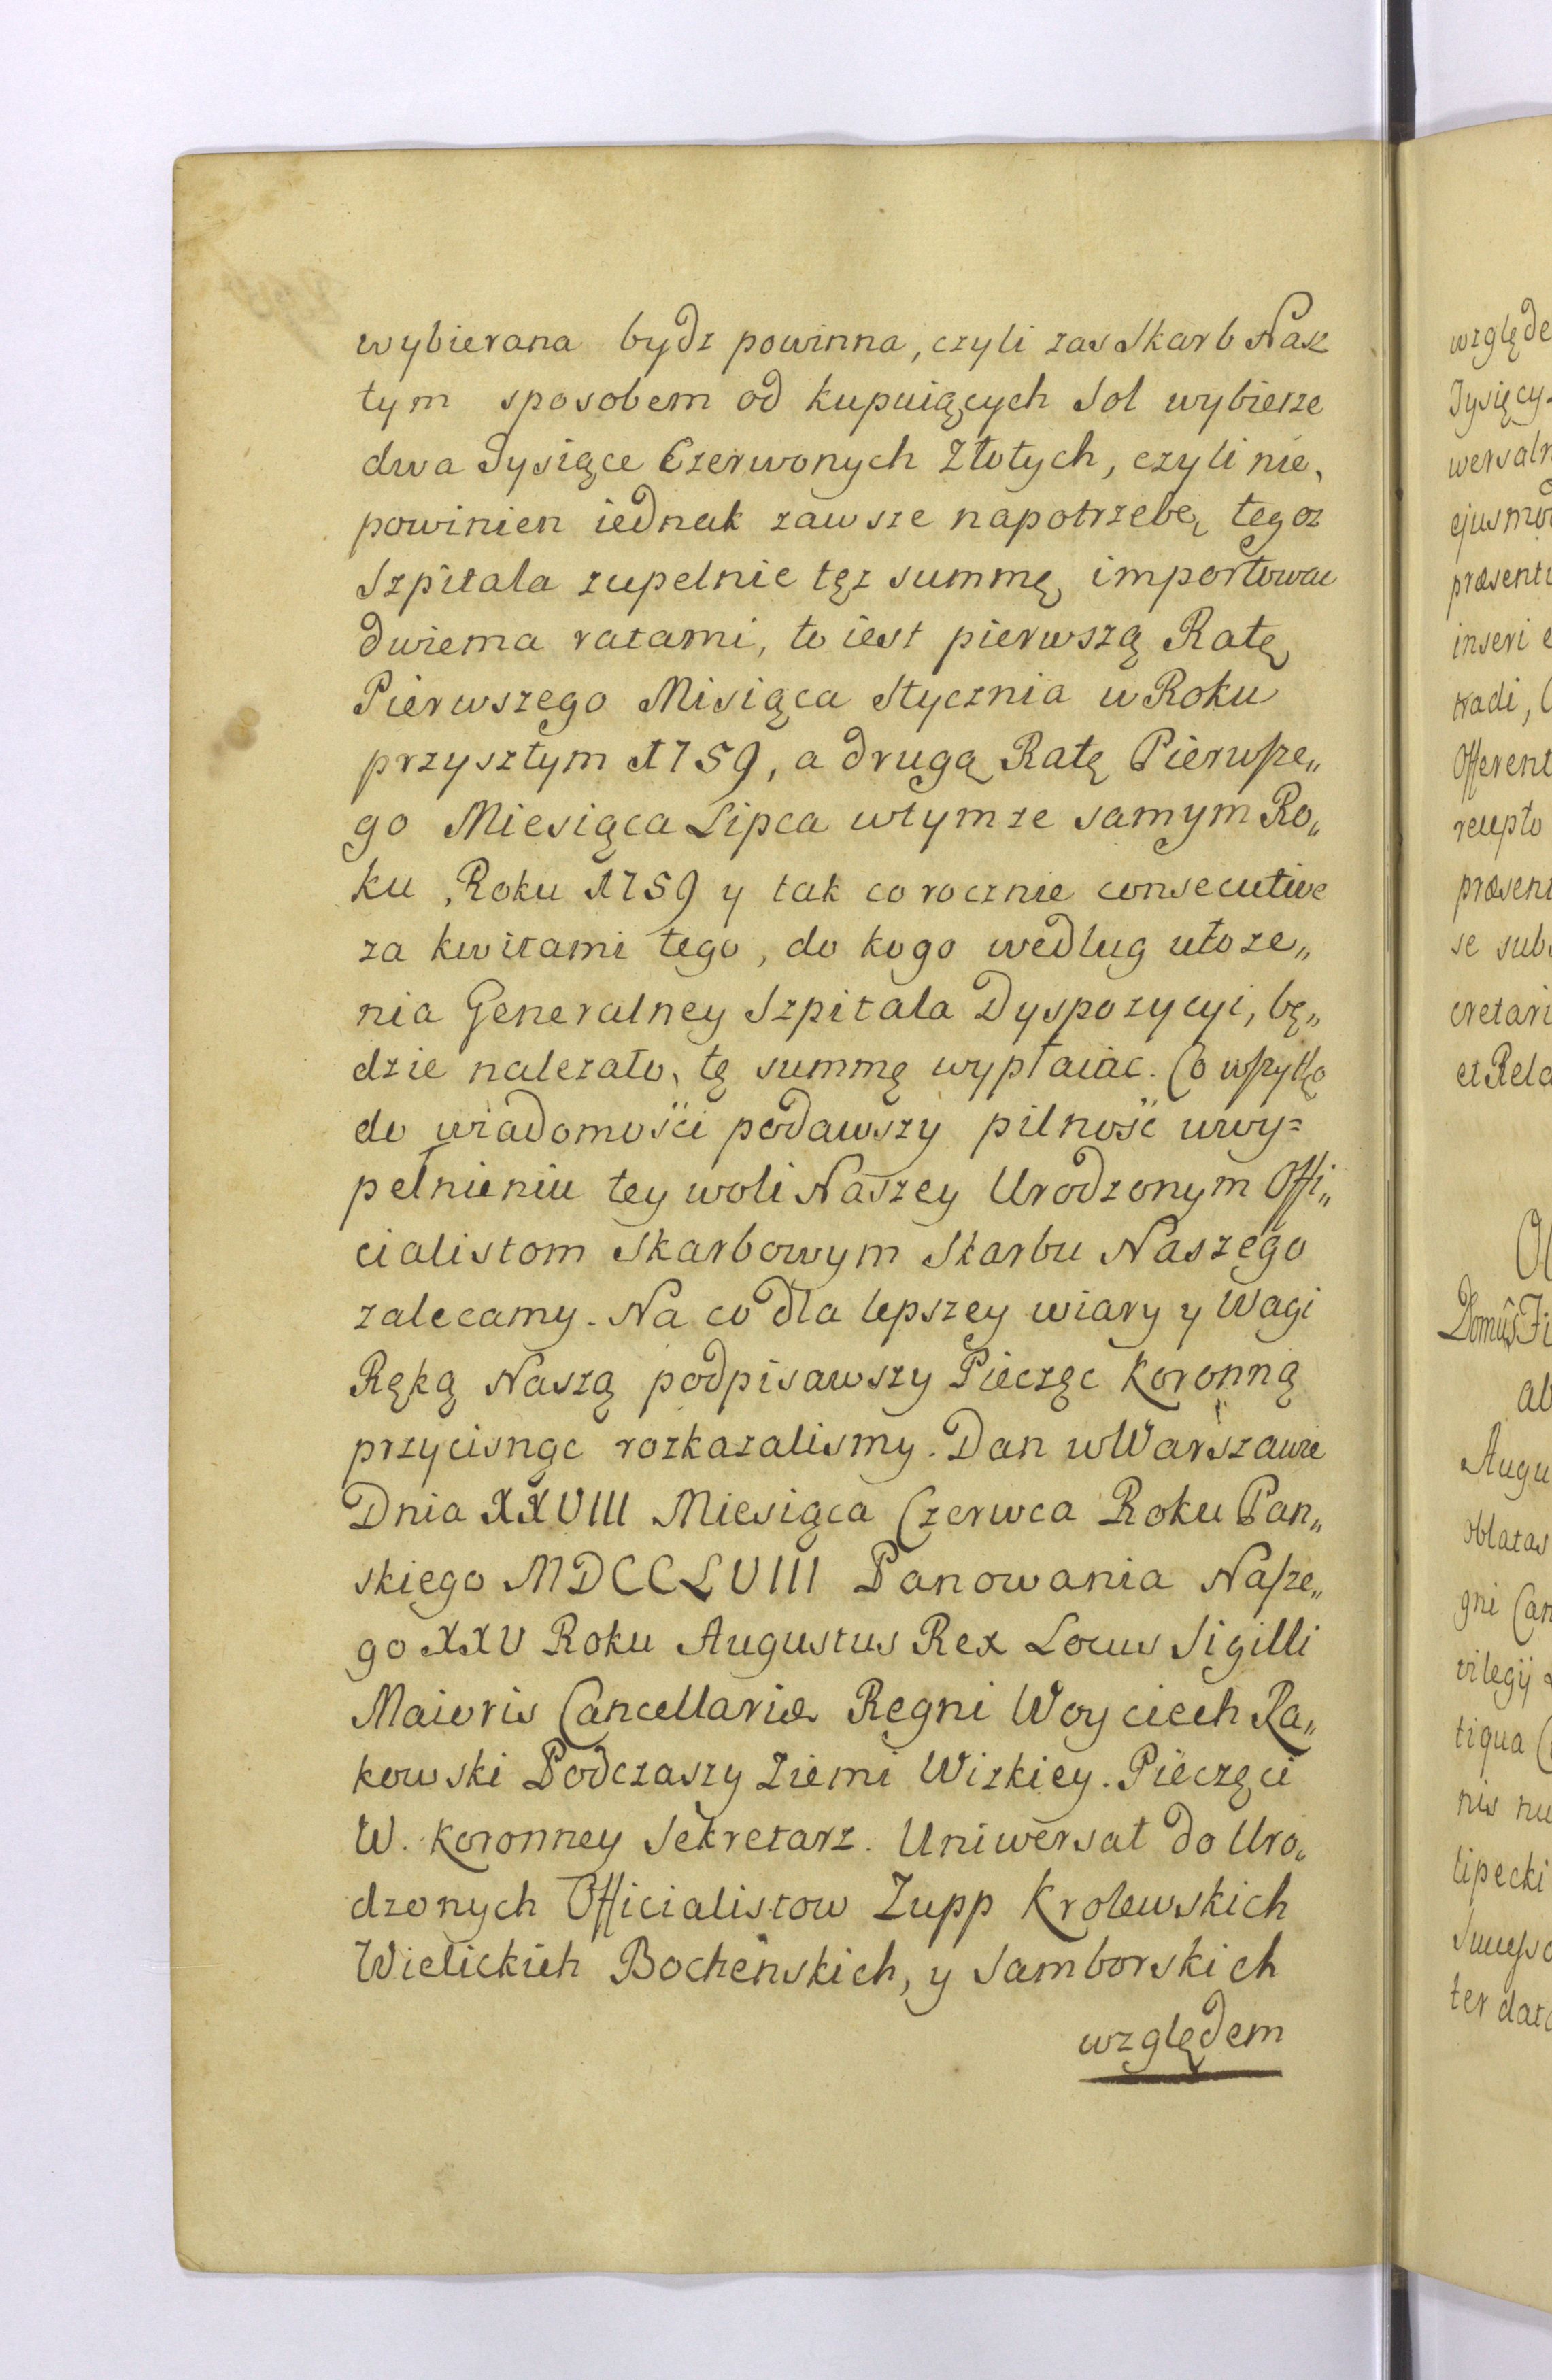 wybierana bydz powinna, czyli zas Skarb Nasz
tym sposobem od kupuiących Sol wybierze
dwa Tysiące Czerwonych Złotych, czyli nie,
powinien iednak zawsze napotrzebę tegoz
Szpitala zupelnie tęz summę importowac
dwiema ratami, to iest pierwszą Ratę
Pierwszego Misiąca Stycznia w Roku
przysztym 1759, a drugą Ratę Pierwsze„
go Miesiąca Lipca wtymze samym Ro„
ku, Roku 1759 y tak corocznie consecutive
za kwitami tego, do kogo według ułoze„
nia Generalney Szpitala Dyspozycyi, bę„
dzie nalezało, tę summę wypłaiac. Co wszytko
do wiadomości podawszy pilność wwy=
pełnieniu tey woli Naszey Urodzonym Offi„
cialistom Skarbowym Skarbu Naszego
zalecamy. Na co dla lepszey wiary y Wagi
Ręką Naszą podpisawszy Pieczęc Koronną
przycisnąc rozkazalismy. Dan w Warszawie
Dnia XXVIII Miesiąca Czerwca Roku Pan„
skiego MDCCLVIII Panowania Nasze„
go XXV Roku Augustus Rex Locus Sigilli
Maioris Cancellariæ Regni Woyciech Ra„
kowski Podczaszy Ziemi Wizkiey. Pieczęci
W. Koronney Sekretarz. Uniwersał do Uro„
dzonych Officialistow Zupp Krolewskich
Wielickich Bocheńskich, y Samborskich
względem
względe
Tysięcy
wersaln
ejusmod
præsenti
inseri e
tradi,
Offerent
recepto
præsent
se sub
cretari
et Rela
Domûs Fi
ab
Augu
oblatas
gni Can
vilegij
tiqua
nis nu
lipecki
ter dat